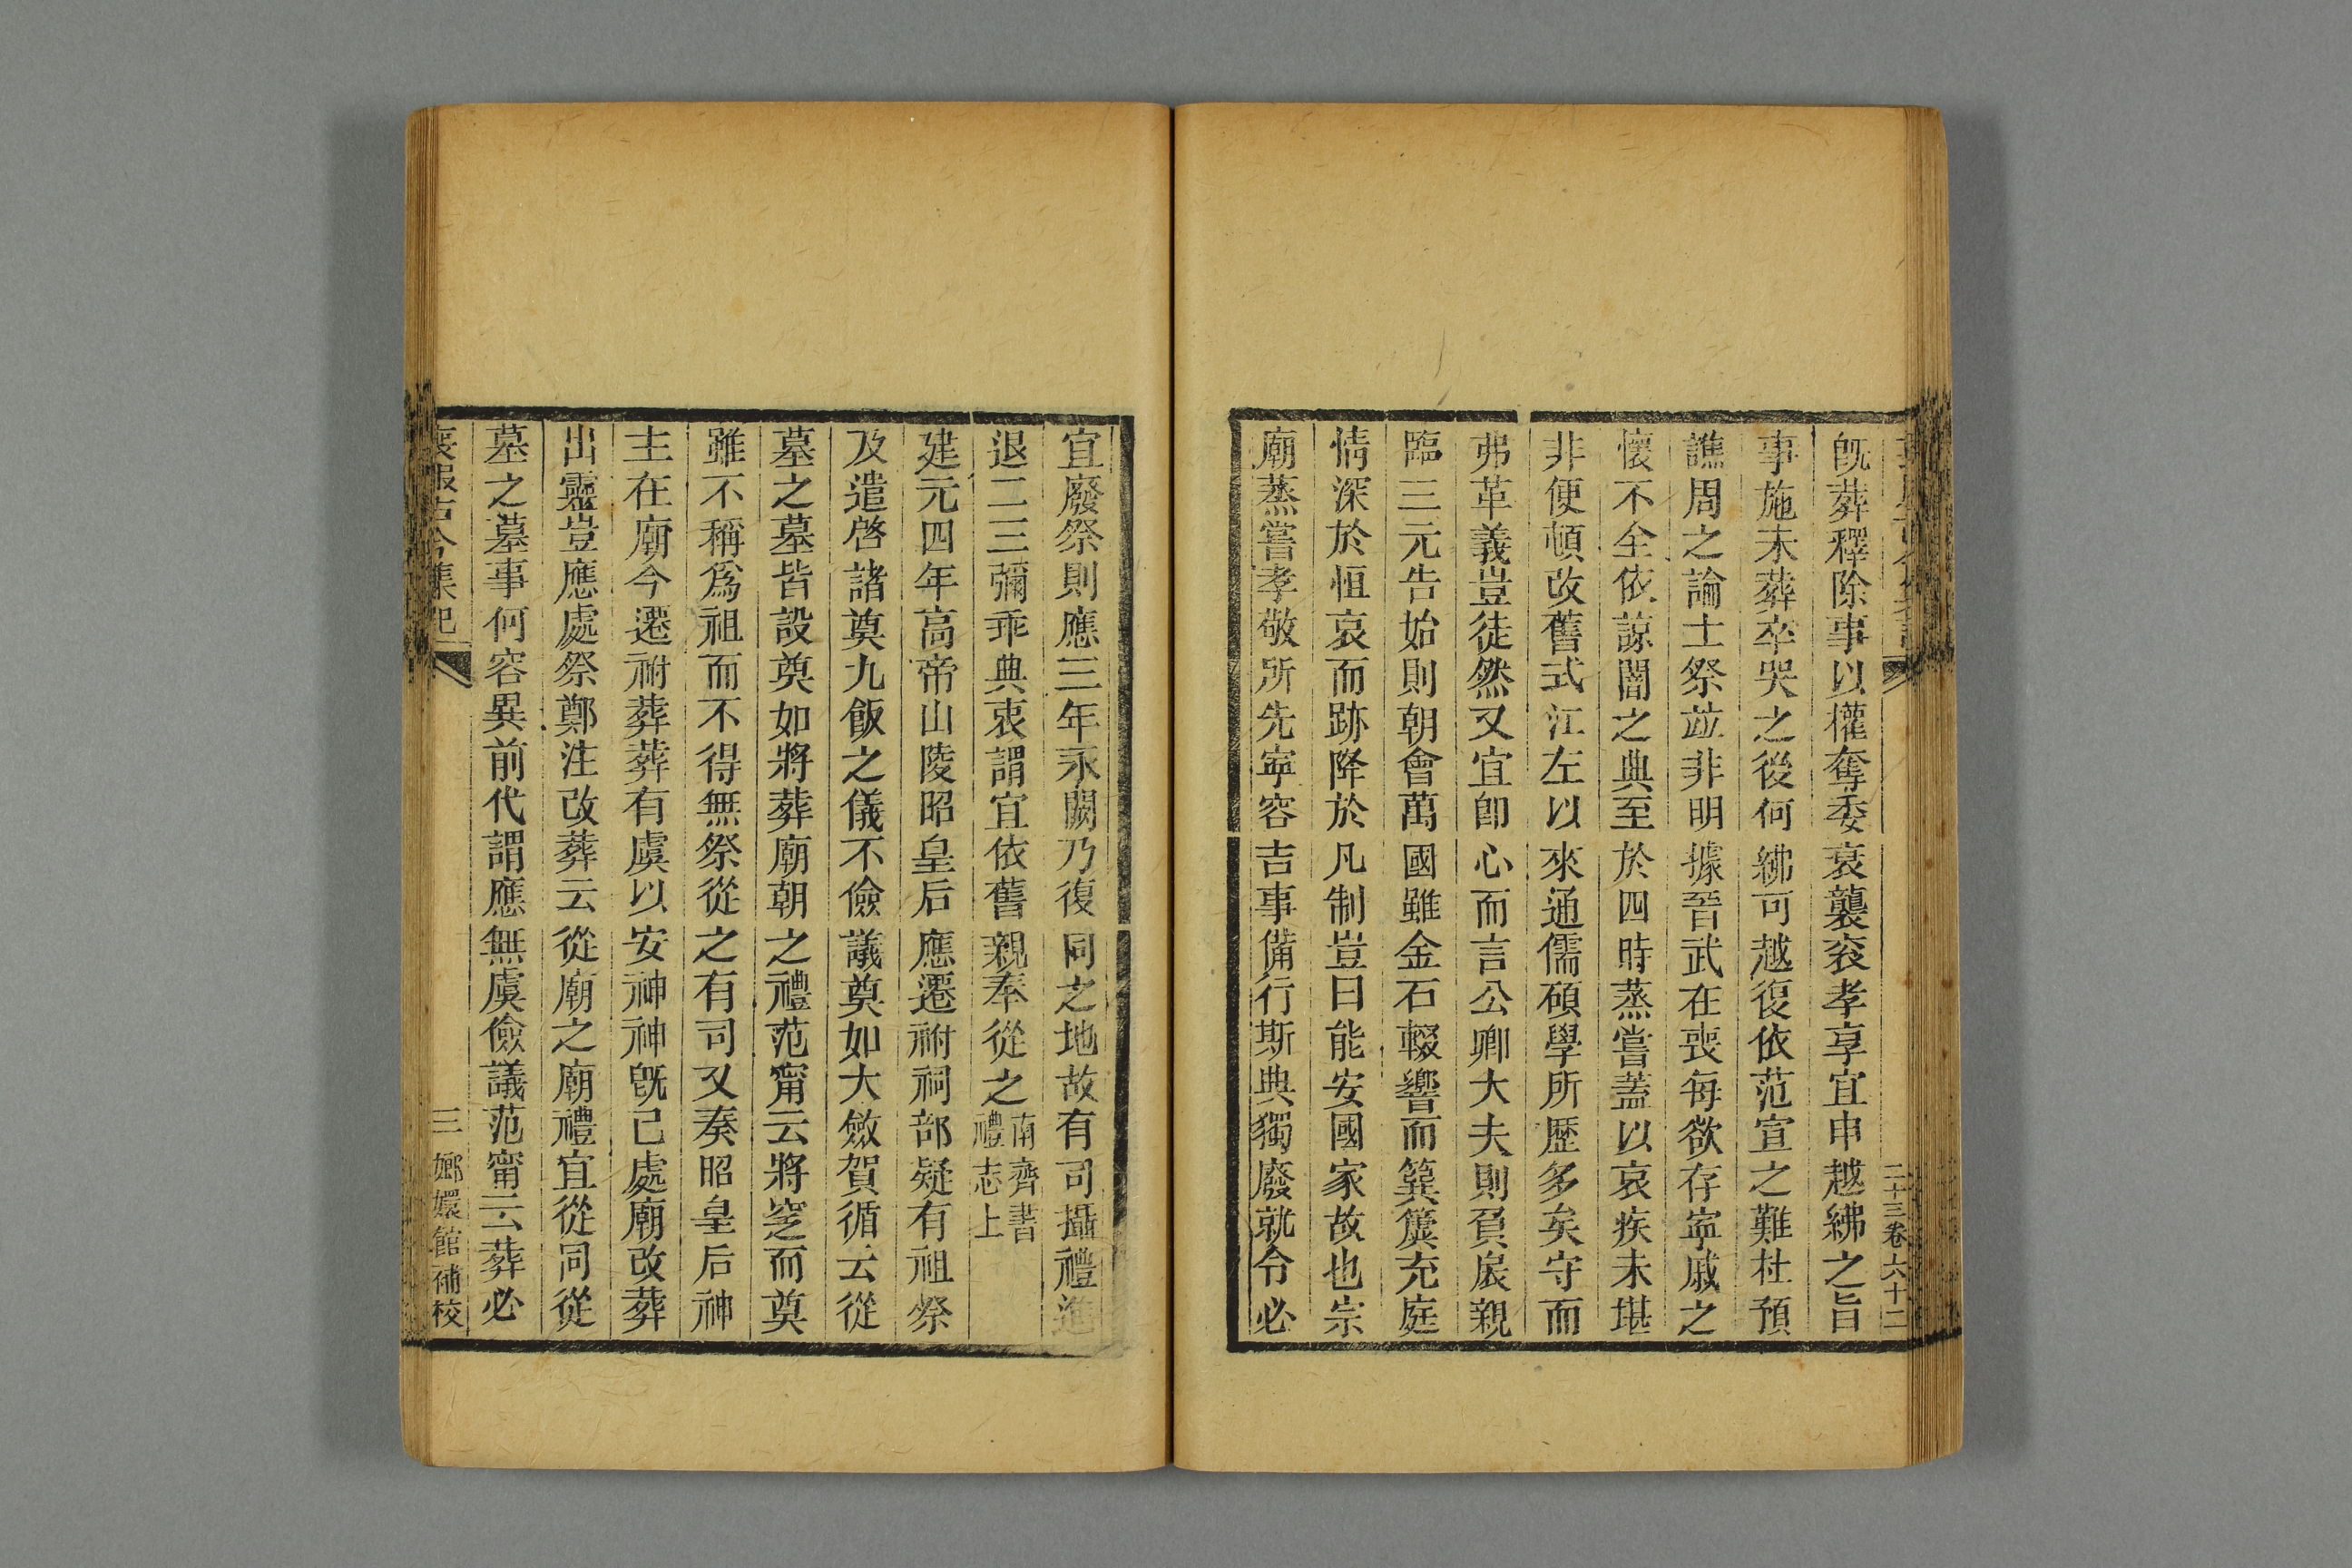 二十三卷六十二
旣葬釋除事以權奪委衰襲衮孝享宜申越紼之旨
事施未葬卒哭之後何紼可越復依范宣之難杜預
譙周之論士祭竝非明據晉武在喪每欲存寧戚之
懷不全依諒闇之典至於四時蒸嘗蓋以哀疾未堪
非便頓改舊式江左以來通儒碩學所歷多矣守而
弗革義豈徒然又宜卽心而言公卿大夫則負扆親
臨三元告始則朝會萬國雖金石輟響而簨簴充庭
情深於恒哀而跡降於凡制豈曰能安國家故也宗
廟蒸嘗孝敬所先寧容吉事備行斯典獨廢就令必
宜廢祭則應三年永闕乃復同之地故有司攝禮進
退二三彌乖典衷謂宜依舊親奉從之南齊書禮志上
建元四年高帝山陵昭皇后應遷祔祠部疑有祖祭
及遣啓諸奠九飯之儀不儉議奠如大斂賀循云從
墓之墓皆設奠如將葬廟朝之禮范甯云將窆而奠
雖不稱爲祖而不得無祭從之有司又奏昭皇后神
主在廟今遷祔葬葬有虞以安神神旣已處廟改葬
出靈豈應處祭鄭注改葬云從廟之廟禮宜從同從
墓之墓事何容異前代謂應無虞儉議范甯云葬必
喪服古今集記 三 嫏嬛館補校